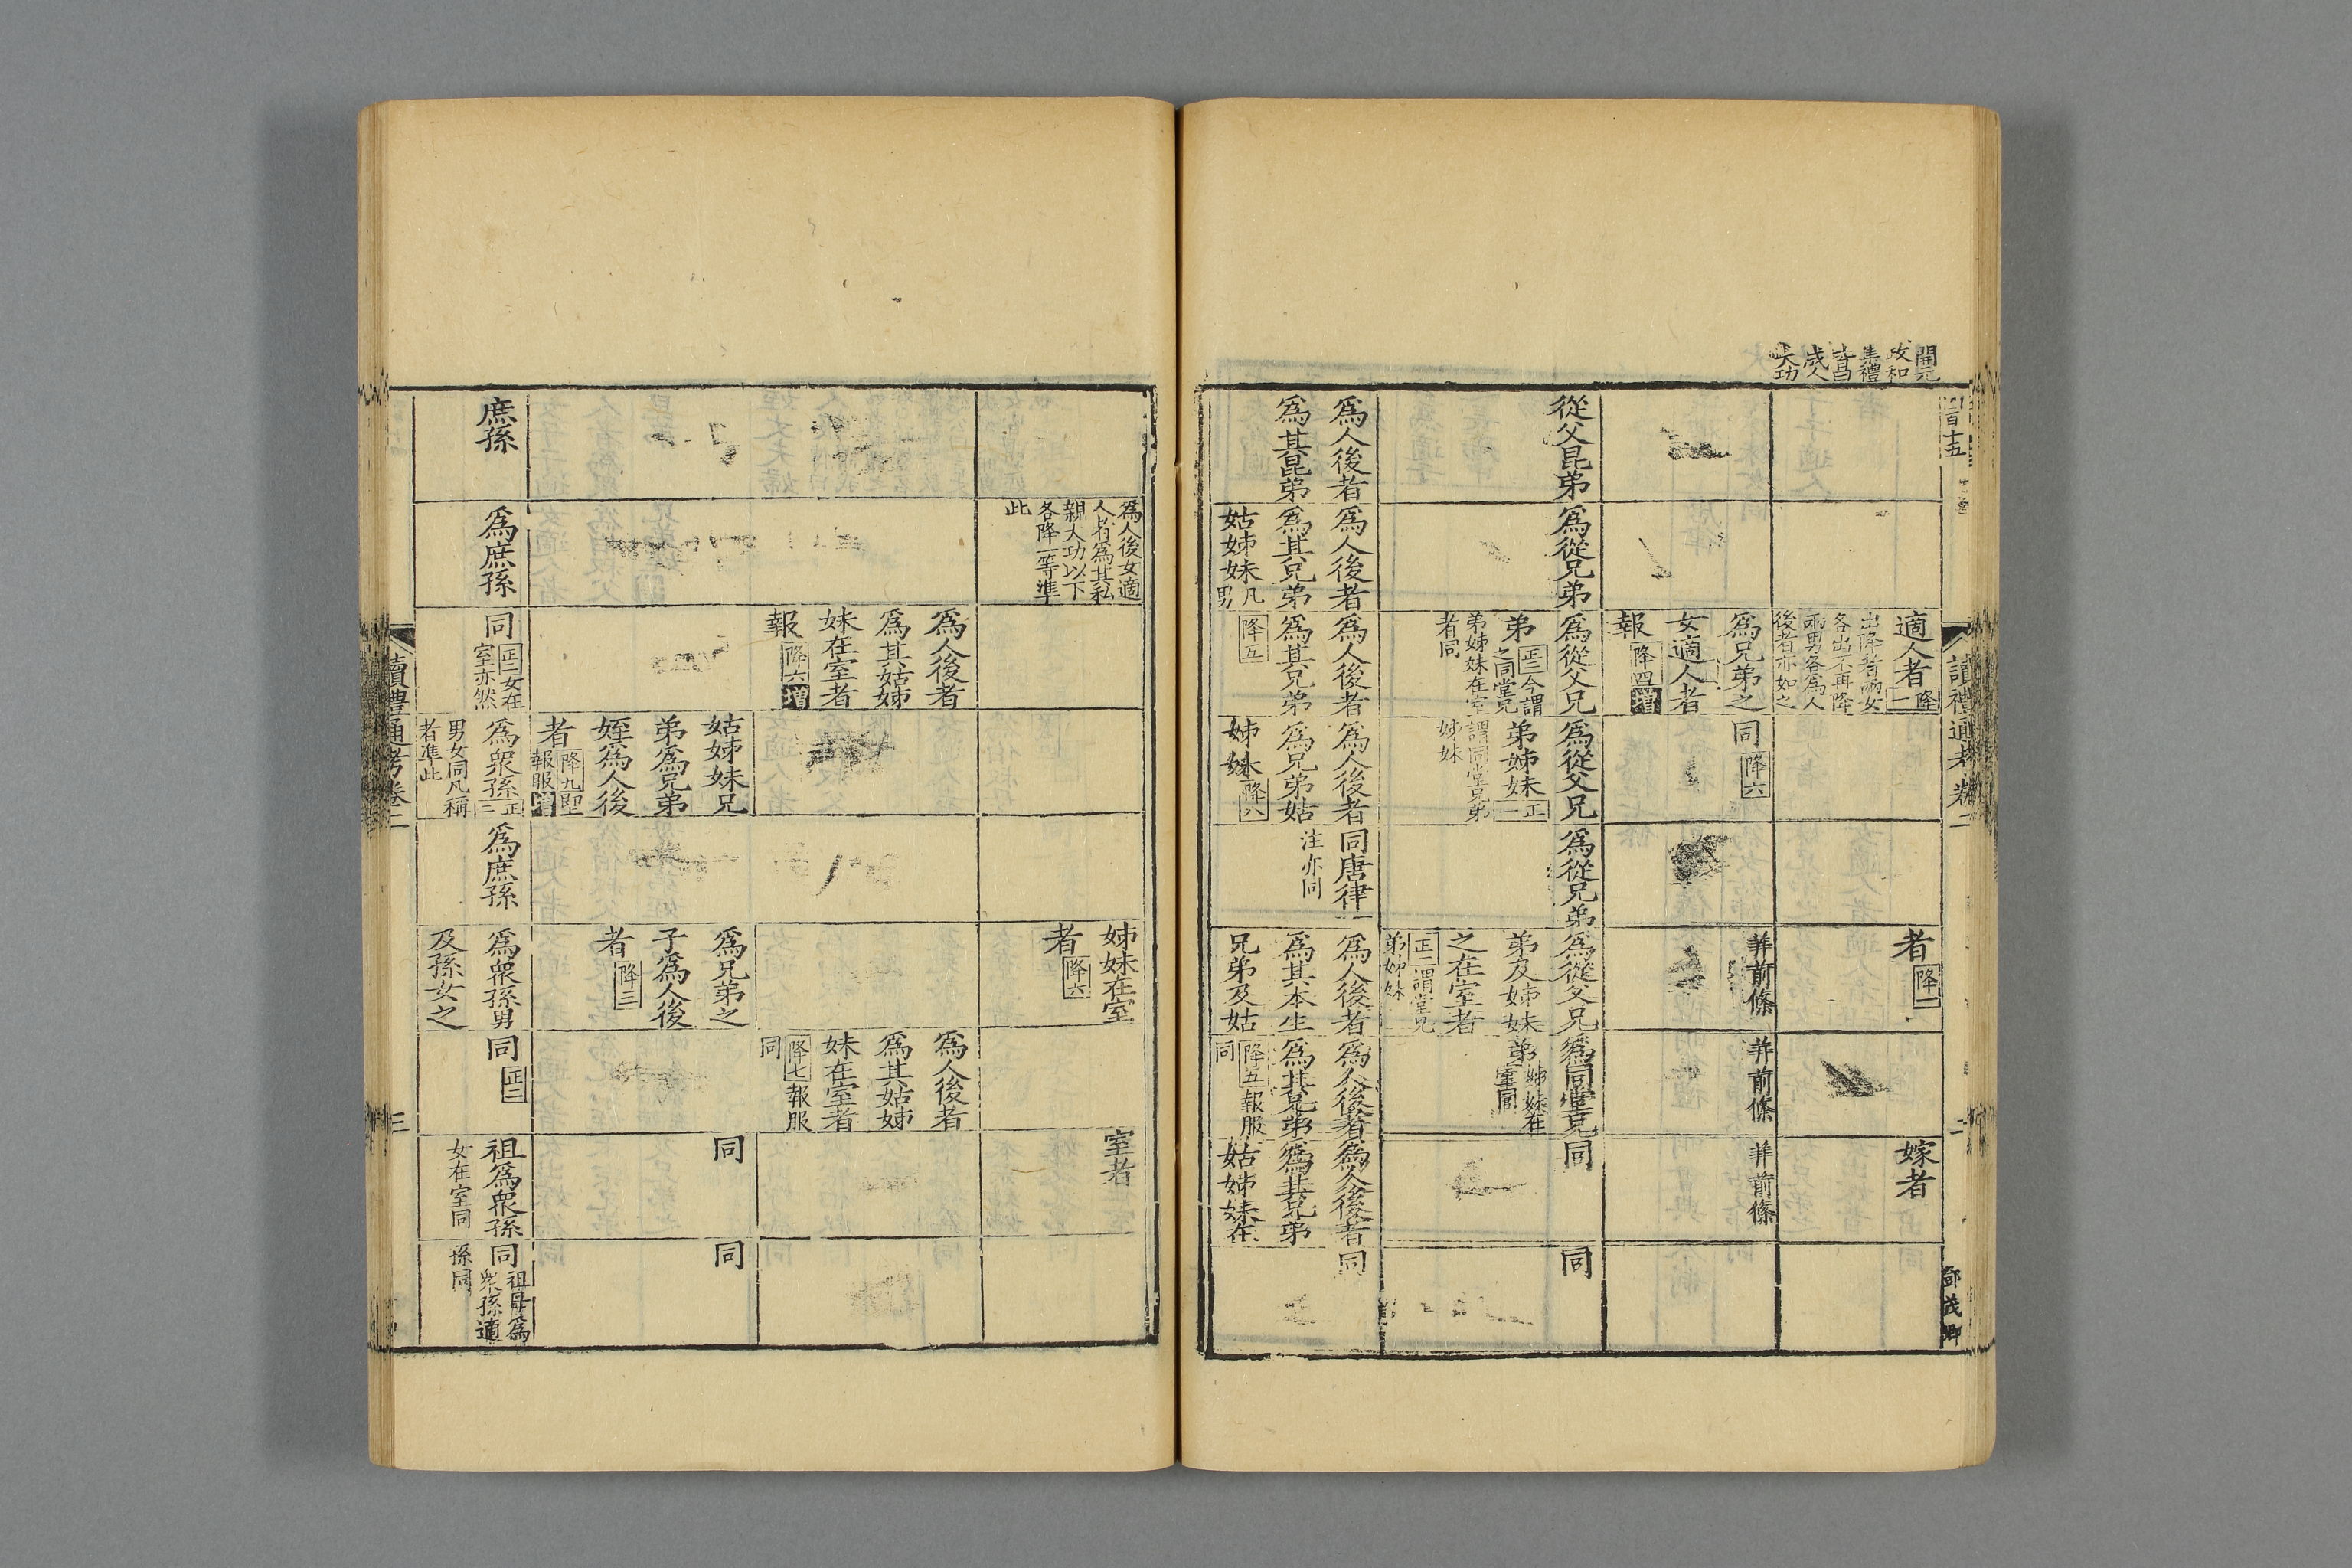 開元
政和
二禮
皆爲
成人
大功
讀禮通考卷二
二
適人者降一
出降者兩女
各出不再降
兩男各爲人
後者亦如之
者降一
嫁者
爲兄弟之
女適人者
報降四增
同降六
並前條
並前條
並前條
從父昆弟
爲從兄弟
爲從父兄
弟正三今謂
之同堂兄
弟姊妹在室
者同
爲從父兄
弟姊妹正一
謂同堂兄弟
姊妹
爲從兄弟
爲從父兄
弟及姊妹
之在室者
正二謂堂兄
弟姊妹
爲同堂兄
弟姊妹在
室同
同
同
爲人後者
爲其昆弟
爲人後者
爲其兄弟
姑姊妹凡男
爲人後者
爲其兄弟
降五
爲人後者
爲兄弟姑
姊妹降六
同唐律
注亦同
爲人後者
爲其本生
兄弟及姑
爲人後者
爲其兄弟
降五報服
同
爲人後者
爲其兄弟
姑姊妹在
同
爲人後女適
人者爲其私
親大功以下
各降一等準
此
姊妹在室
者降六
室者
爲人後者
爲其姑姊
妹在室者
報降六增
爲人後者
爲其姑姊
妹在室者
降七報服
同
姑姊妹兄
弟爲兄弟
姪爲人後
者降九即
報服增
爲兄弟之
子爲人後
者降三
同
同
庶孫
爲庶孫
同正二女在
室亦然
爲衆孫正三
男女同凡稱
者準此
爲庶孫
爲衆孫男
及孫女之
同正二
祖爲衆孫
女在室同
同祖母爲
衆孫適
孫同
讀禮通考卷二
三